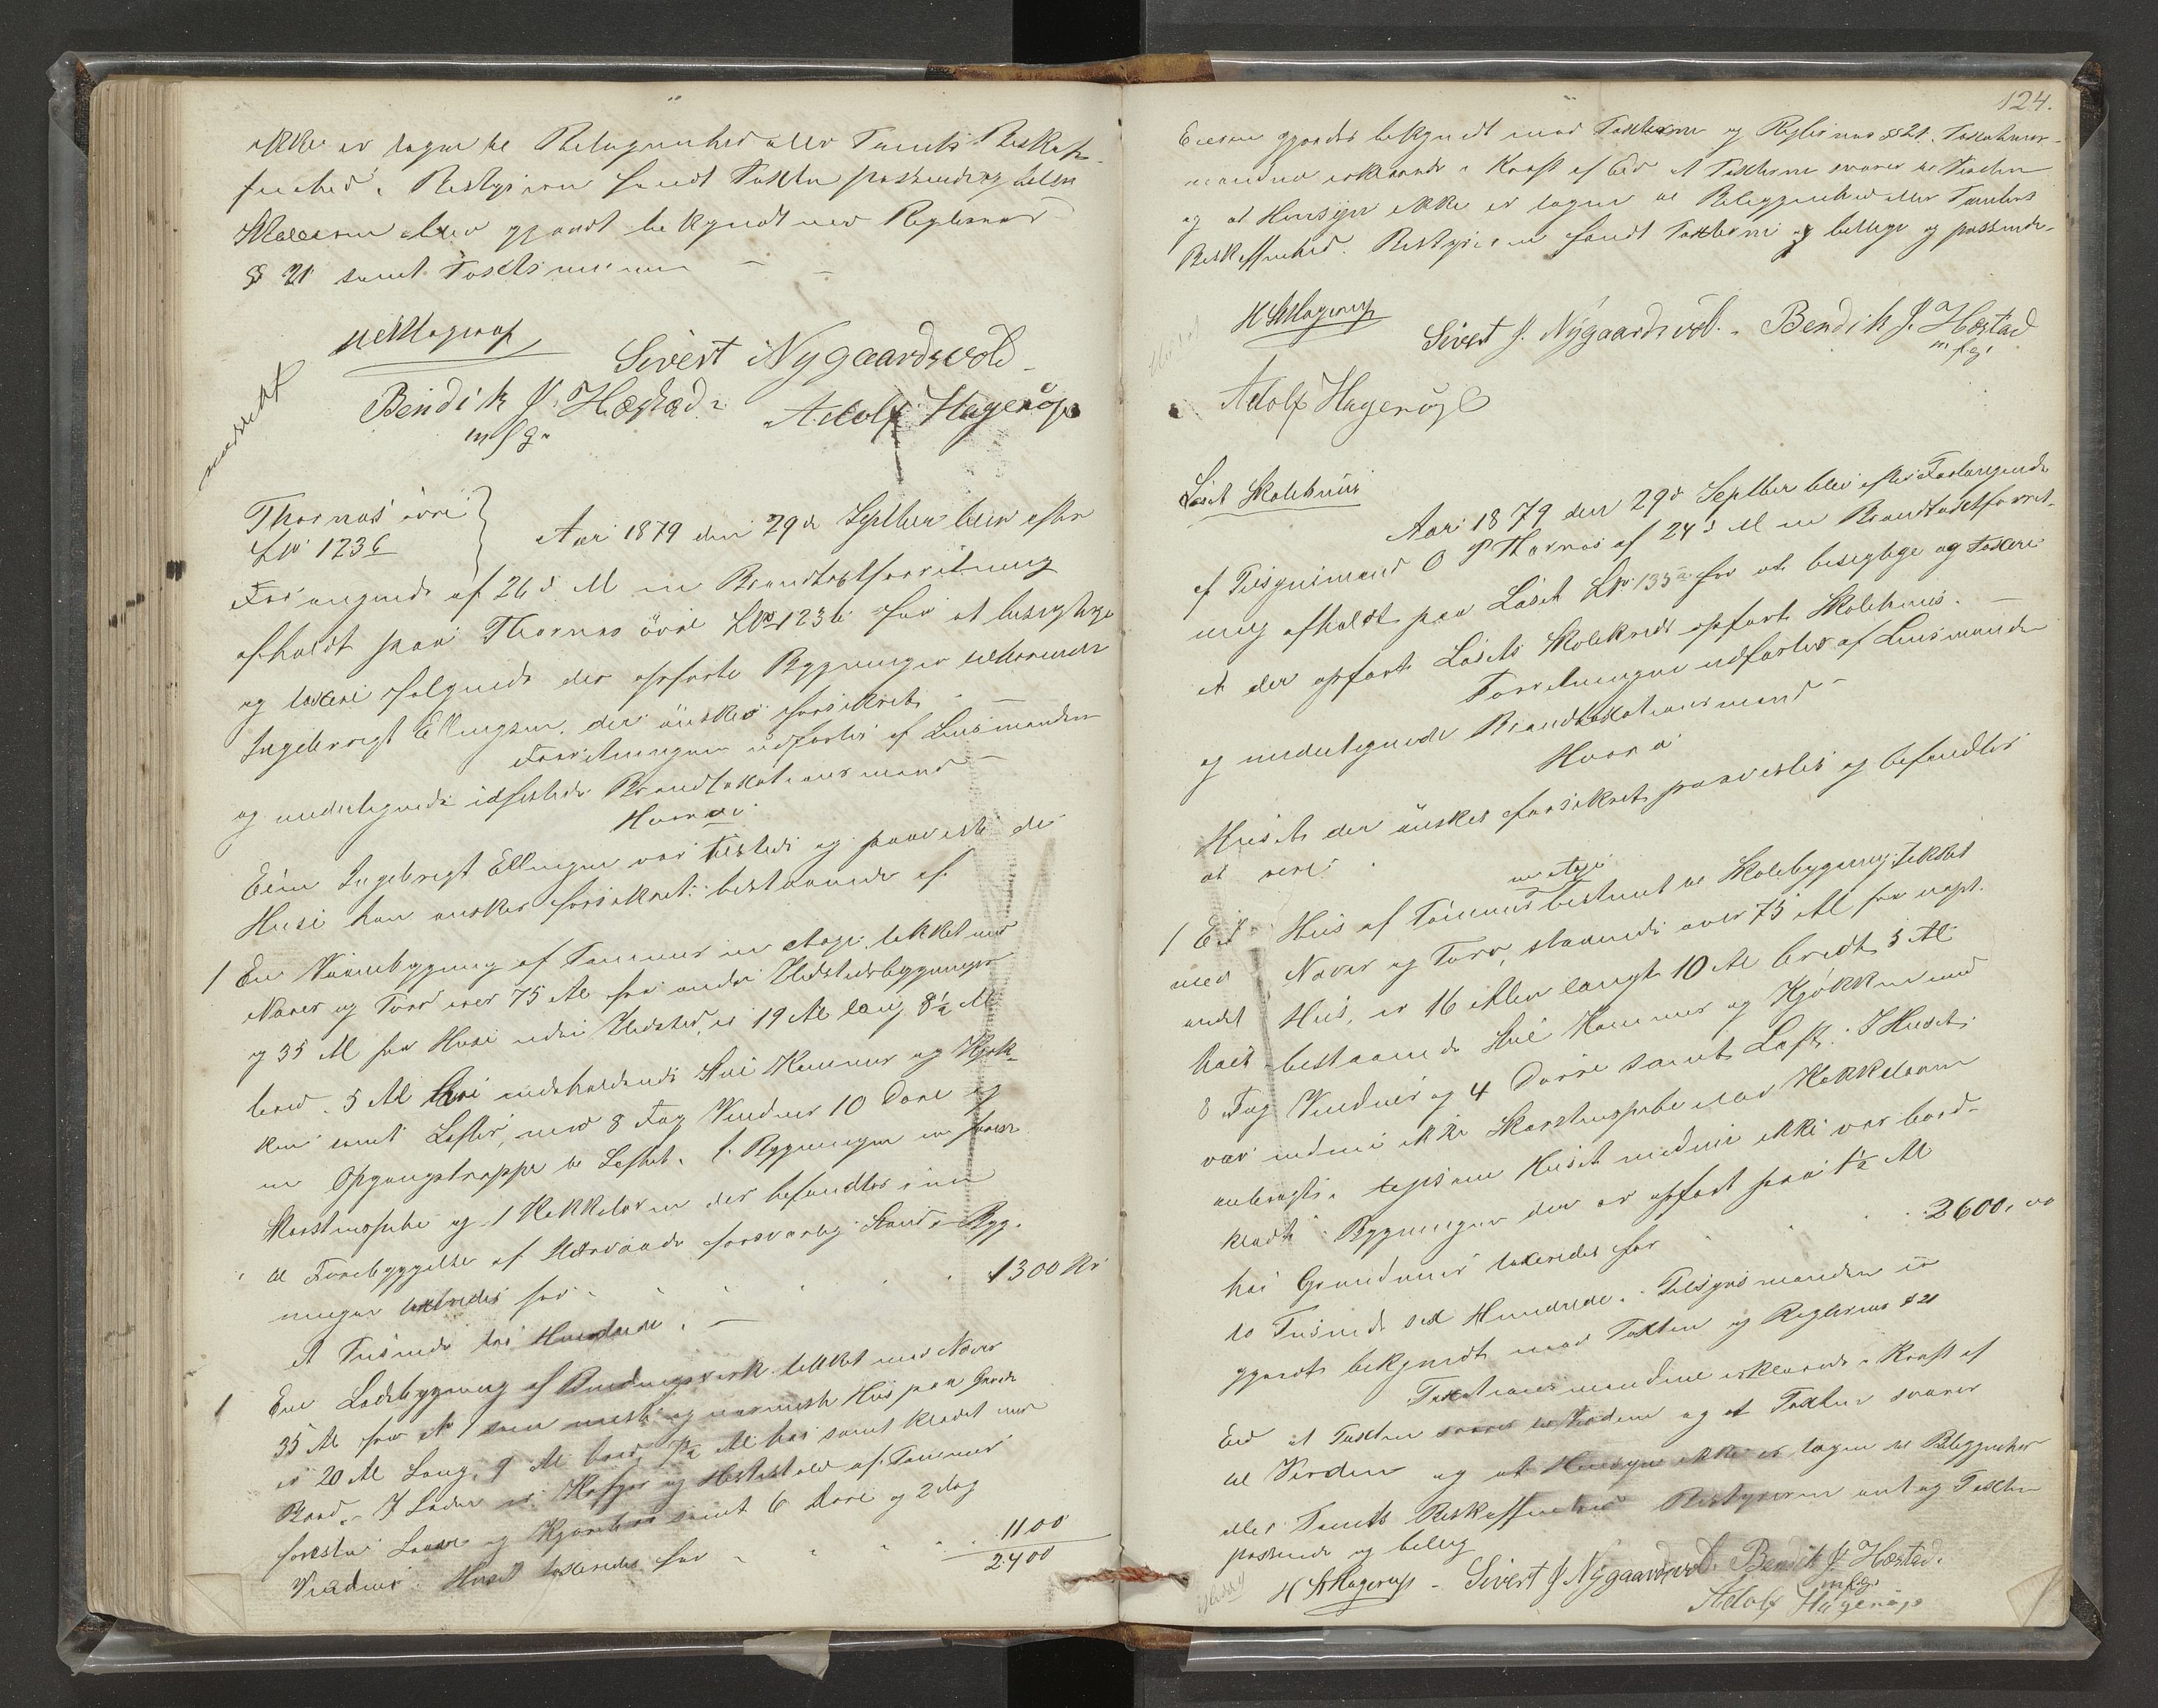 ikke er tagen til Beliggenhed eller Tomts Beskaf-
fenhed. Bestyreren fandt Taxten passende og billig
Eieren blev gjordt bekjendt med Reglernes
§ 21 samt Taxtsummen
Hagerup
Sivert Nygaardsvold
Bendik J. Hæstad.
mfg.
Adolf Hagerup
Thornæs övre
LNo 123b
Aar 1879 den 29de Septber blev efter
Forlangende af 26 d. M en Brandtaxtforretning
afholdt paa Thornæs övre LNo 123b for at besigtige
og taxere følgende der opførte Bygninger tilhørende
Ingebrigt Ellingsen, der önskes forsikret.
Forretningen udførtes af Lensmanden
og undertegnede edfæstede Brandtaxationsmænd
Hvorda
Eieren Ingebrigt Ellingsen var tilstede og paaviste de
Huse han ønsker forsikret: bestaaende af
1 En Vaanbygning af Tømmer en Etage. tækket med
Næver og Torv over 75 Al fra andre Ildstedsbygninger
og 35 Al fra Huse uden Ildsted, er 19 Al lang 8½ Al
bred. 5 Al høi indeholdende Stue Kammer og Kjøk-
ken samt Lofter, med 8 Fag Vinduer 10 Døre og
en Opgangstrappe til Loftet. I Bygningen en
Skorstenspibe og 1 Kakkelovn der befandtes i en
til Forebyggelse af Ildsvaade forsvarlig Stand. Byg-
ningen taxeredes for . . . 1300 Kr
et Tusinde tre Hundrede.
1 En Ladebygning af Bindingsverk tækket med Næver
35 Al fra No 1 som næste og nærmeste Hus paa Gaarden
er 20 Al Lang, 9 Al bred, 7½ Al høi samt klædet med
Bord. I Laden er Høfjøs og Hestestald af Tømmer
forresten Laave og samt 6 Døre og 2 Fag
Vinduer. Huset taxeredes for . . . 1100
2400
124.
Eieren gjordes bekjendt med Taxterne og Reglernes §21. Taxations-
mændene erklærede i Kraft af Ed at Taxterne svarer til Værdien
og at Hensyn ikke er tagen til Beliggenhed eller Tomtens
Beskaffenhed. Bestyreren fandt Taxterne billige og passende.
Hagerup
Sivert J. Nygaardsvold. Bendik J. Hæstad
mfg.
Adolf Hagerup
Löset Skolehuus
Aar 1879 den 29d Septber blev efter Forlangende
af Tilsynsmand O P Thornæs af 24d M en Brandtaxtforret-
ning afholdt paa Löset LNo 135a for at besigtige og taxere
et der opført Lösets Skolekreds opført Skolehuus.
Forretningen udførtes af Lensmanden
og undertegnede Brandtaxationsmænd
Hvorda
Huset der önskes forsikret paavistes og befandtes
at være:
en Etage
1 Et Huus af Tömmer bestemt til Skolebygning, tækket
med Næver og Torv, staaende over 75 Al fra noget
andet Huus, er 16 Alen langt 10 Al bredt, 5 Al
høit bestaaende Stue Kammer og Kjökken med
8 Fag Vinduer og 4 Dørre samt Loft. I Huset
var endnu ikke Skorstenspibe eller Kakkelovn
anbragt, ligesom Huset endnu ikke var bord-
klædt. Bygningen der er opført paa 1½ Al
høi Grundmur taxeredes for . . . 2600,00
to Tusinde sex Hundrede. Tilsynsmanden er
gjordt bekjendt med Taxten og Reglernes § 21
Taxationsmændene erklærede i Kraft af
Ed at Taxten svarer til Værdien og at Taxten svarer
til Værdien og at Hensyn ikke er tagen til Beliggenhed
eller Tomts Beskaffenhed Bestyreren antog Taxten
passende og billig
Hagerup - Sivert J Nygaardsvold. Bendik J. Hæstad.
mfg.
Adolf Hagerup